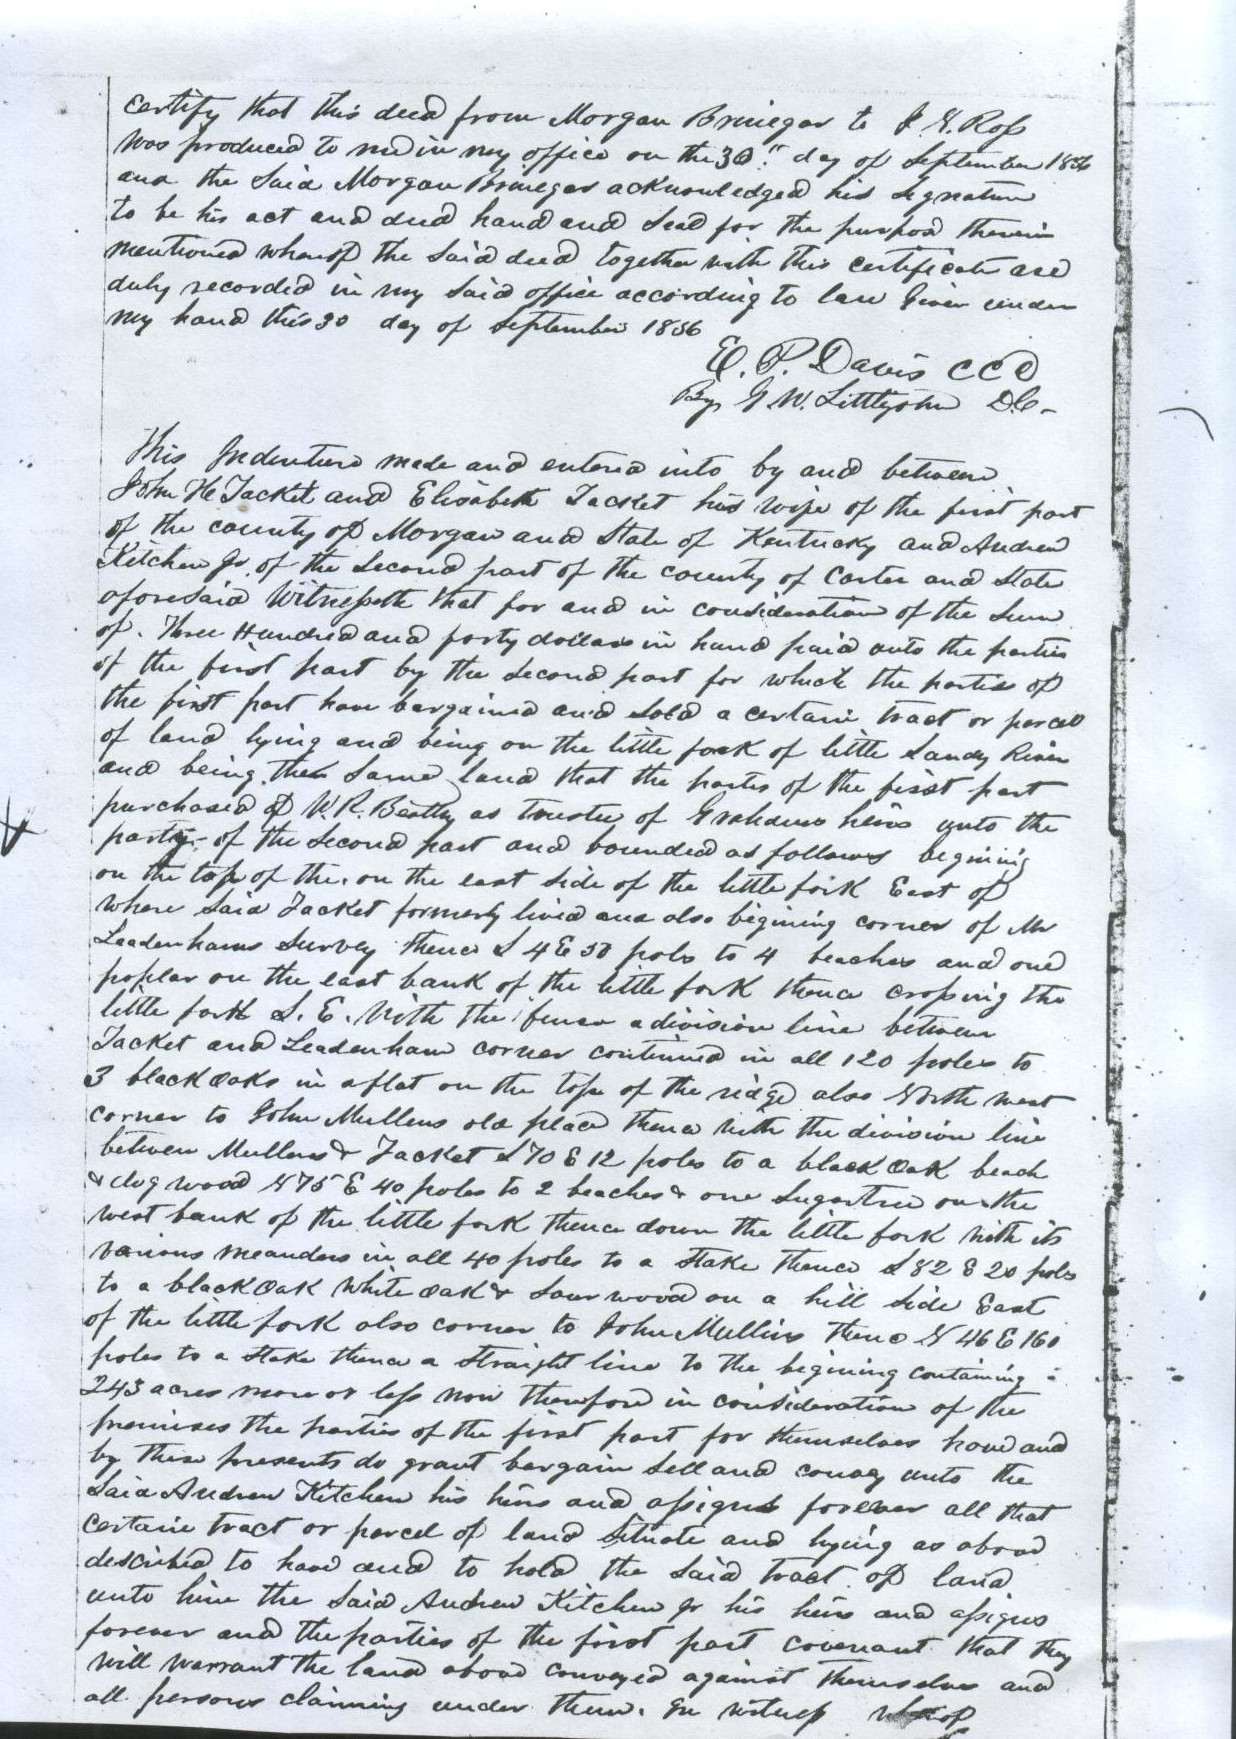 certify that this deed from Morgan Brinegar to J. G. Ross
was produced to me in my office on the 30th day of September 1856
and the Said Morgan Brinegar acknowledged his signature
to be his act and deed hand and Seal for the purpose therein
mentioned whereof the Said deed together with this certificate are
duly recorded in my Said office according to law Given under
my hand this 30 day of September 1856
E. P. Davis CCC
By G. W. Littlejohn D.C.
This Indenture made and entered into by and between
John H Tacket and Elisabeth Tacket his wife of the first part
of the county of Morgan and State of Kentucky and Andrew
Kitchen Jr of the Second part of the county of Carter and State
aforesaid Witnesseth that for and in consideration of the Sum
of. Three Hundred and forty dollars in hand paid unto the parties
of the first part by the Second part for which the parties of
the first part have bargained and Sold a certain tract or parcel
of land lying and being on the little fork of little Sandy River
and being the Same land that the parties of the first part
purchased of W. R. Beatty as trustee of Grahams heirs unto the
party of the Second part and bounded as follows begining
on the top of the. on the east Side of the little fork East of
where Said Tacket formerly lived and also begining corner of Mr
Leadenhams Survey thence S 4 E 50 poles to 4 beaches and one
poplar on the east bank of the little fork thence crossing the
little fork S. E. With the fence a division line between
Tacket and Leadenham corner continued in all 120 poles to
3 black oaks in a flat on the top of the ridge also North west
corner to John Mullens old place thence with the division line
between Mullens & Tacket S 70 E 12 poles to a black oak beach
& dogwood N 75 E 40 poles to 2 beaches & one Sugartree on the
west bank of the little fork thence down the little fork with its
various meanders in all 40 poles to a Stake thence S 82 E 20 poles
to a black oak White oak & Sour wood on a hill Side East
of the little fork also corner to John Mullins thence N 46 E 160
poles to a Stake thence a Straight line to the begining containing
243 acres more or less now therefore in consideration of the
premises the parties of the first part for themselves have and
by these presents do grant bargain Sell and convey unto the
Said Andrew Kitchen his heirs and assigns forever all that
certain tract or parcel of land Situate and lying as above
described to have and to hold the Said tract of land
unto him the Said Andrew Kitchen Jr his heirs and assigns
forever and the parties of the first part covenant that they
will warrant the land above conveyed against themselves and
all persons claiming under them. In witness whereof